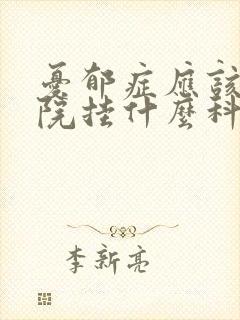 憂郁症應該
院挂什麼科
李新亮